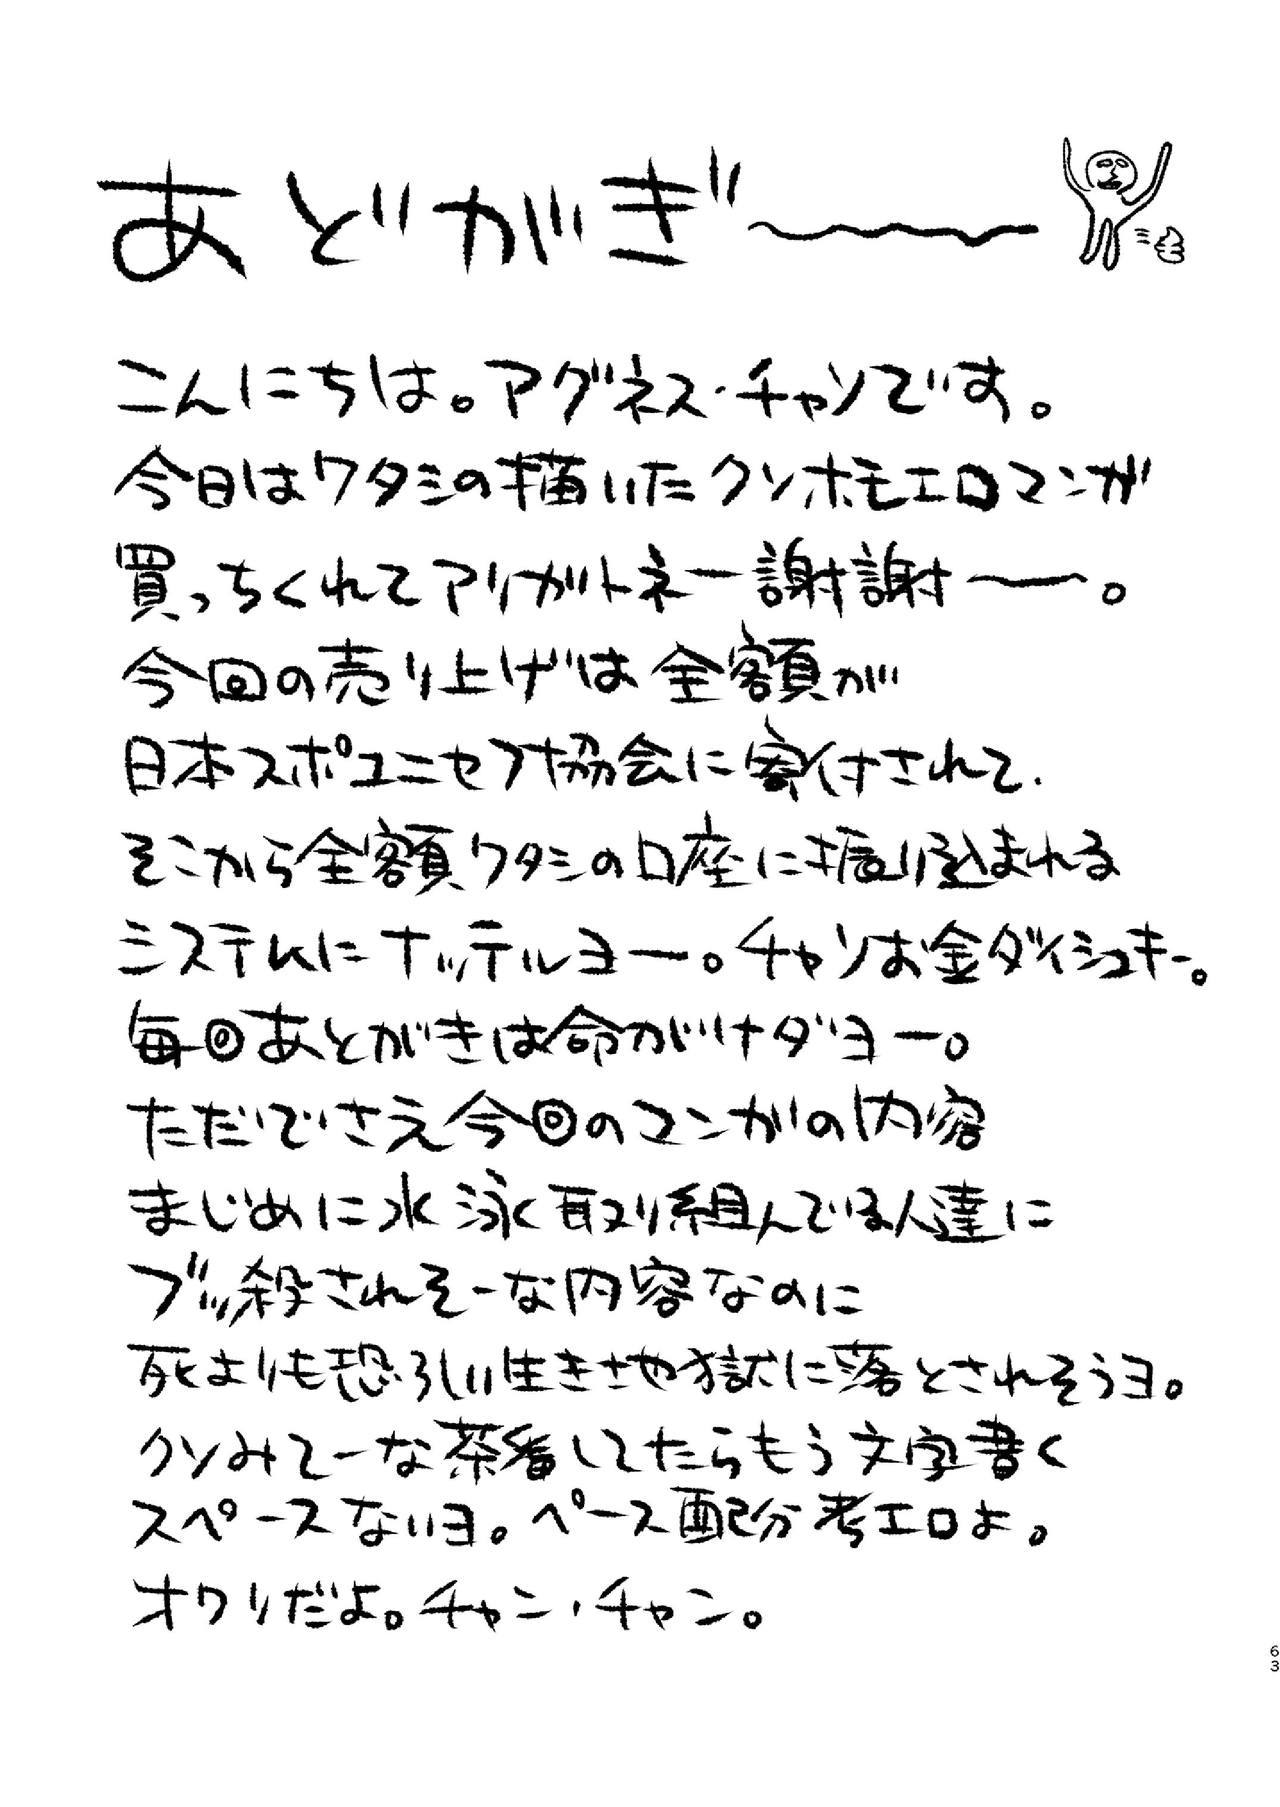 あどがぎ〜
こんにちは。アグネス・チャンです。
今日はワタシの描いたクソホモエロマンガ
買っちくれてアリガトネー謝謝ー。
今回の売り上げは全額が
日本スポユニセフ協会に寄付されて、
そこから全額ワタシの口座に振り込まれる
システムにナッテルヨー。チャンお金ダイシュキー。
毎回あとがきは命がけダヨー。
ただでさえ今回のマンガの内容
まじめに水泳取り組んでる人達に
ブッ殺されそーな内容なのに
死よりも恐ろしい生きさせ獄に落とされそうヨ。
クソみてーな茶番してたらもう文字書く
スペースないヨ。ペース配分考エロよ。
オワリだよ。チャン・チャン。
63